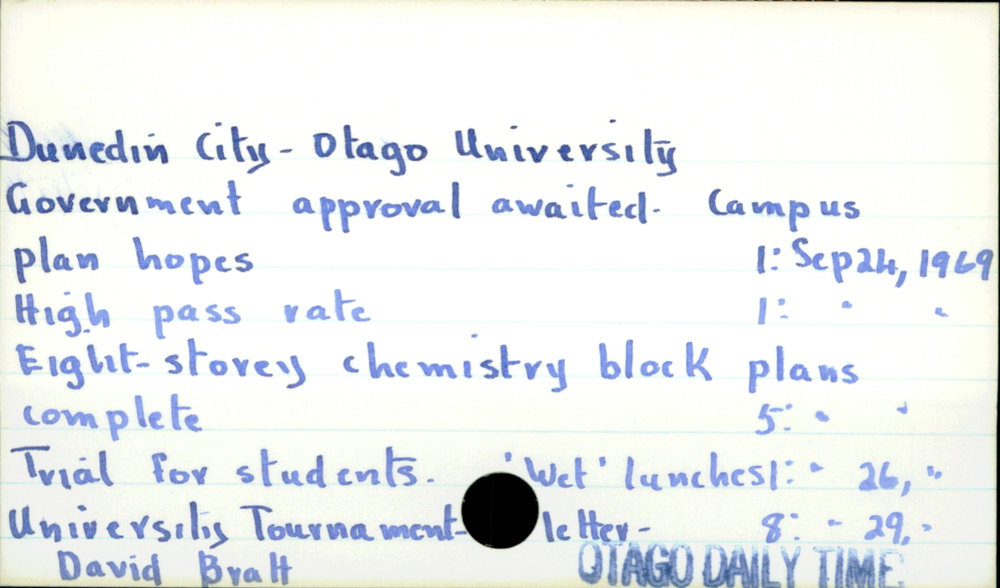 Dunedin City - Otago University
Government approval awaited. Campus
plan hopes 1: Sep 24, 1969
High pass rate 1: " "
Eight-storey chemistry block plans
complete 5: " "
Trial for students. 'Wet' lunches 1: " 26, "
University Tournament- letter - 8: " 29, "
David Bratt
OTAGO DAILY TIME